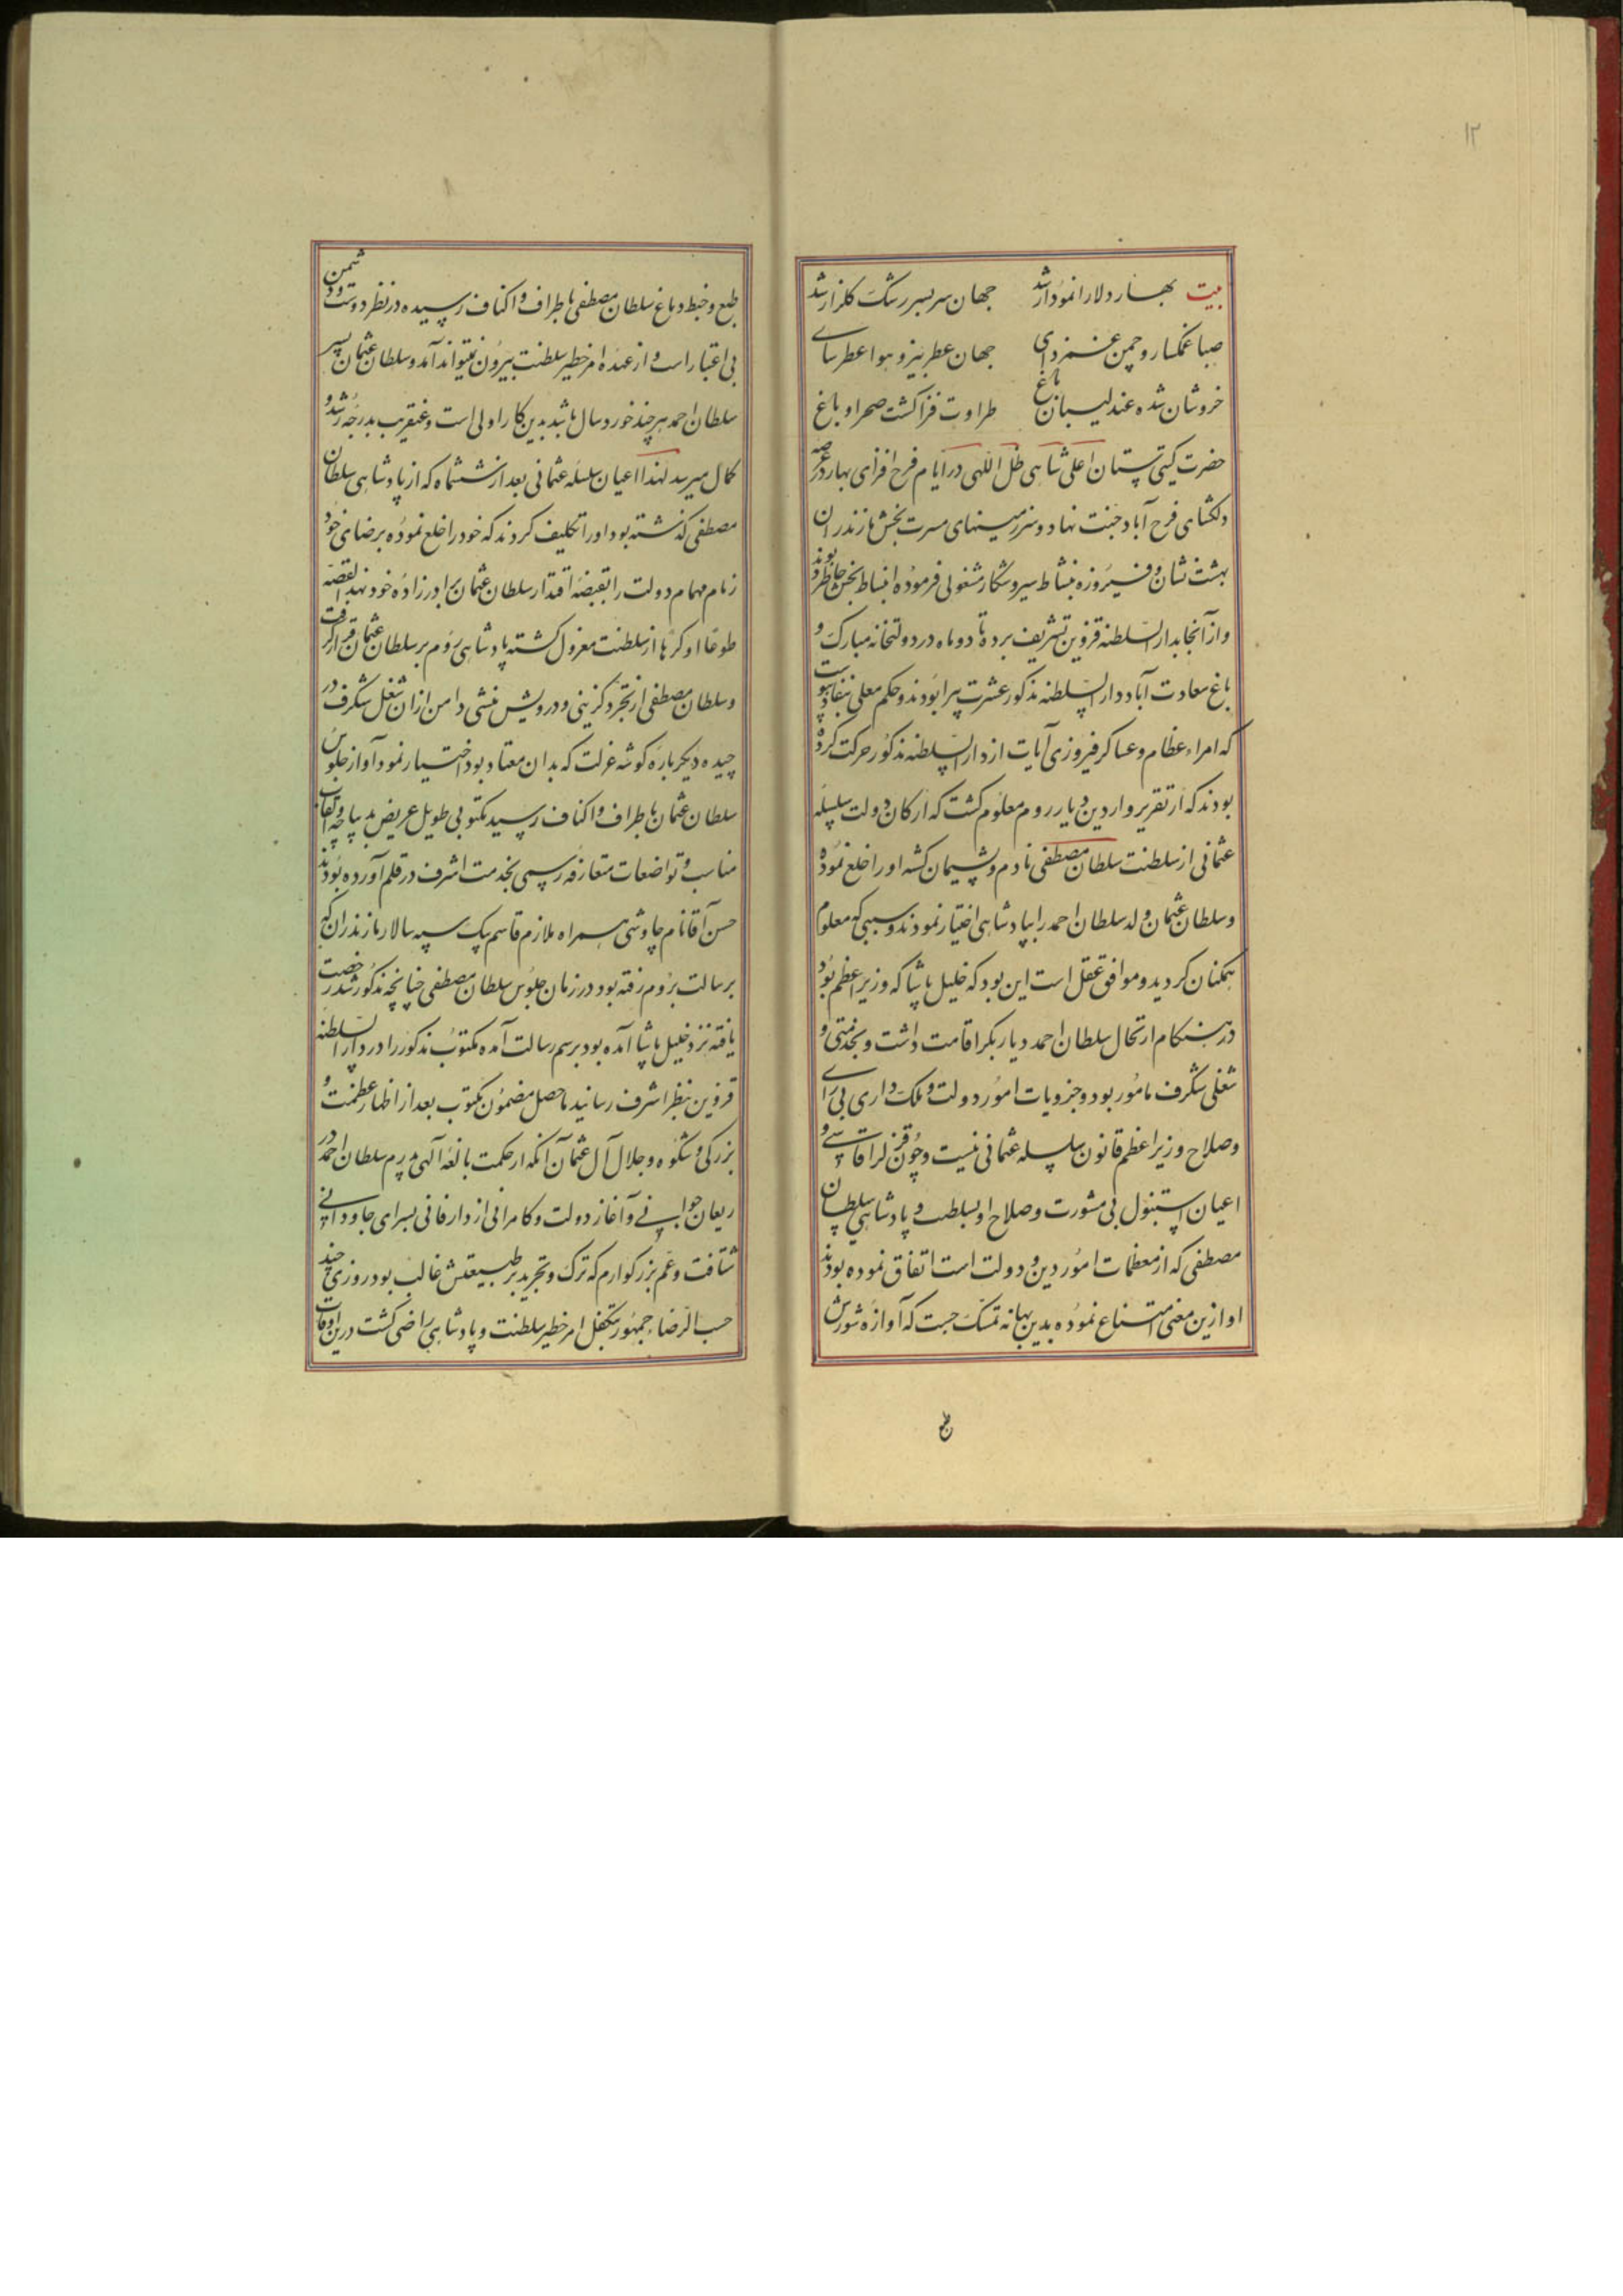 ۱۲
بیت بهار دلارا نمودار شد جهان سربسر رشک کلزار شد
صبا غمکسار و چمن غمزدای جهان عطربیز و هوا عطرسای
خروشان شده عندلیبان باغ طراوت فزا کشت صحرا و باغ
حضرت کیتی ستان اعلی شاهی ظل اللهی در ایام فرح افزای بهار در عرصه
دلکشای فرح آباد جنت نهاد و سرزمینهای مسرت بخش مازندران
بهشت نشان و فیروزه بنشاط سیر و شکار مشغولی فرموده انبساط بخش خاطر بودند
و از آنجا بدار السلطنه قزوین تشریف برده تا دو ماه در دولتخانه مبارک و
باغ سعادت آباد دار السلطنه مذکور عشرت پیرا بودند و حکم معلی بنفاذ پیوست
که امراء عظام و عساکر فیروزی آیات از دار السلطنه مذکور حرکت کرده
بودند که از تقریر واردین دیار روم معلوم کشت که ارکان دولت سلسله
عثمانی از سلطنت سلطان مصطفی نادم و پشیمان کشته او را خلع نموده
و سلطان عثمان ولد سلطان احمد را بپادشاهی اختیار نمودند و سببی که معلوم
همکنان کردید و موافق عقل است این بود که خلیل پاشا که وزیر اعظم بود
در هنکام ارتحال سلطان احمد دیار بکر اقامت داشت و بخدمتی و
شغلی شکرف مامور بود و جزویات امور دولت و ملک داری بی رای
و صلاح وزیر اعظم قانون سلسله عثمانی نیست و چون قزلر اقاسی و
اعیان استنبول بی مشورت و صلاح او بسلطنت و پادشاهی سلطان
مصطفی که از معظمات امور دین و دولت است اتفاق نموده بودند
او ازین معنی امتناع نموده بدین بهانه تمسک جست که آوازه شورش
طبع
طبع و خبط دماغ سلطان مصطفی باطراف و اکناف رسیده در نظر دوست و دشمن
بی اعتبار است و از عهده امر خطیر سلطنت بیرون نمیتواند آمد و سلطان عثمان پسر
سلطان احمد هر چند خورد سال باشد بدین کار اولی است و عنقریب بدرجه رشد و
کمال میرسد لهذا اعیان سلسله عثمانی بعد از ششماه که از پادشاهی سلطان
مصطفی کذشته بود او را تکلیف کردند که خود را خلع نموده برضای خود
زمام مهام دولت را بقبضه اقتدار سلطان عثمان برادر زاده خود نهد القصه
طوعا او کرها از سلطنت معزول کشته پادشاهی روم بر سلطان عثمان قرار کرفت
و سلطان مصطفی از تجرد کزینی و درویش منشی دامن از ان شغل شکرف در
چیده دیکر باره کوشه عزلت که بدان معتاد بود اختیار نمود آوازه جلوس
سلطان عثمان باطراف و اکناف رسید مکتوبی طویل عریض بدیباچه و القاب
مناسب و تواضعات متعارفه رسمی بخدمت اشرف در قلم آورده بودند
حسن آقا نام چاوشی همراه ملازم قاسم بیک سپه سالار مازندران که
برسالت بروم رفته بود در زمان جلوس سلطان مصطفی چنانچه مذکور شد رخصت
یافته نزد خلیل پاشا آمده بود برسم رسالت آمده مکتوب مذکور را در دار السلطنه
قزوین بنظر اشرف رسانید ماحصل مضمون مکتوب بعد از اظهار عظمت و
بزرکی و شکوه و جلال آل عثمان آنکه از حکمت بالغه آلهی پدرم سلطان احمد در
ریعان جوانی و آغاز دولت و کامرانی از دار فانی بسرای جاودانی
شتافت و عم بزرکوارم که ترک و تجرید بر طبیعتش غالب بود روزی چند
حسب الرضاء جمهور متکفل امر خطیر سلطنت و پادشاهی راضی کشت درین اوقات